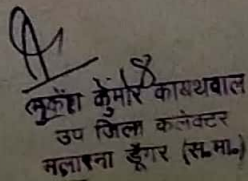 (मुकेश कुमार कायथवाल
उप जिला कलेक्टर
मलारना डूँगर (स.मा.)